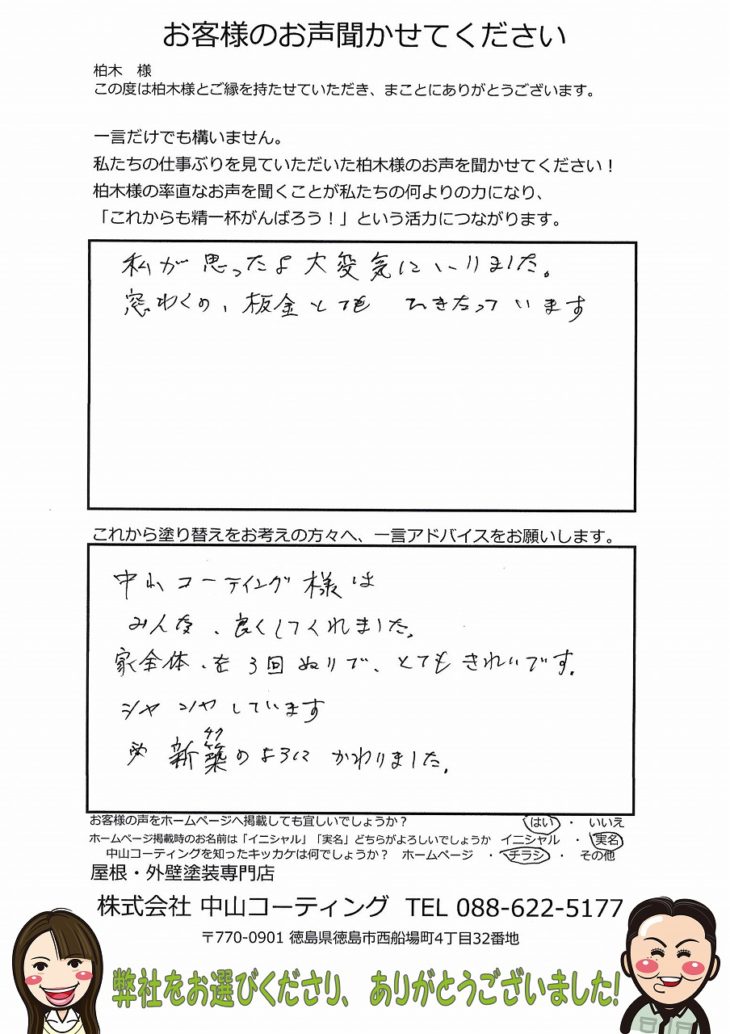 お客様のお声聞かせてください
柏木 様
この度は柏木様とご縁を持たせていただき、まことにありがとうございます。
一言だけでも構いません。
私たちの仕事ぶりを見ていただいた柏木様のお声を聞かせてください！
柏木様の率直なお声を聞くことが私たちの何よりの力になり、
「これからも精一杯がんばろう！」という活力につながります。
私が思ったよ大変気にいりました。
窓わくの、板金とても ひきたっています
これから塗り替えをお考えの方々へ、一言アドバイスをお願いします。
中山コーティング様は
みんな、良くしてくれました。
家全体、を3回ぬりで、とてもきれいです。
しています
新築のように かわりました。
チク
お客様の声をホームページへ掲載しても宜しいでしょうか？ はい ・ いいえ
ホームページ掲載時のお名前は「イニシャル」「実名」どちらがよろしいでしょうか イニシャル ・ 実名
中山コーティングを知ったキッカケは何でしょうか？ ホームページ ・ チラシ ・ その他
屋根・外壁塗装専門店
株式会社 中山コーティング TEL 088-622-5177
〒770-0901 徳島県徳島市西船場町4丁目32番地
弊社をお選びくださり、ありがとうございました!